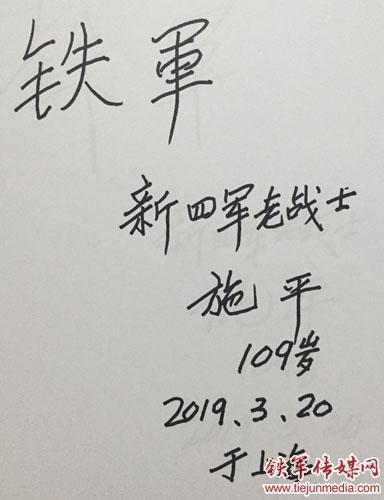 铁軍
新四军老战士
施平
109岁
2019.3.20
于上海
铁军传媒网
www.tiejunmedia.com